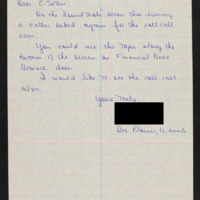 Dear C-Span
On the Roundtable seven this evening
a caller asked again for the roll-call
vote.
You could use the tape along the
bottom of the screen as Financial News
Network does.
I would like to see the roll-call
also.
Yours Truly
Des Plaines, Il